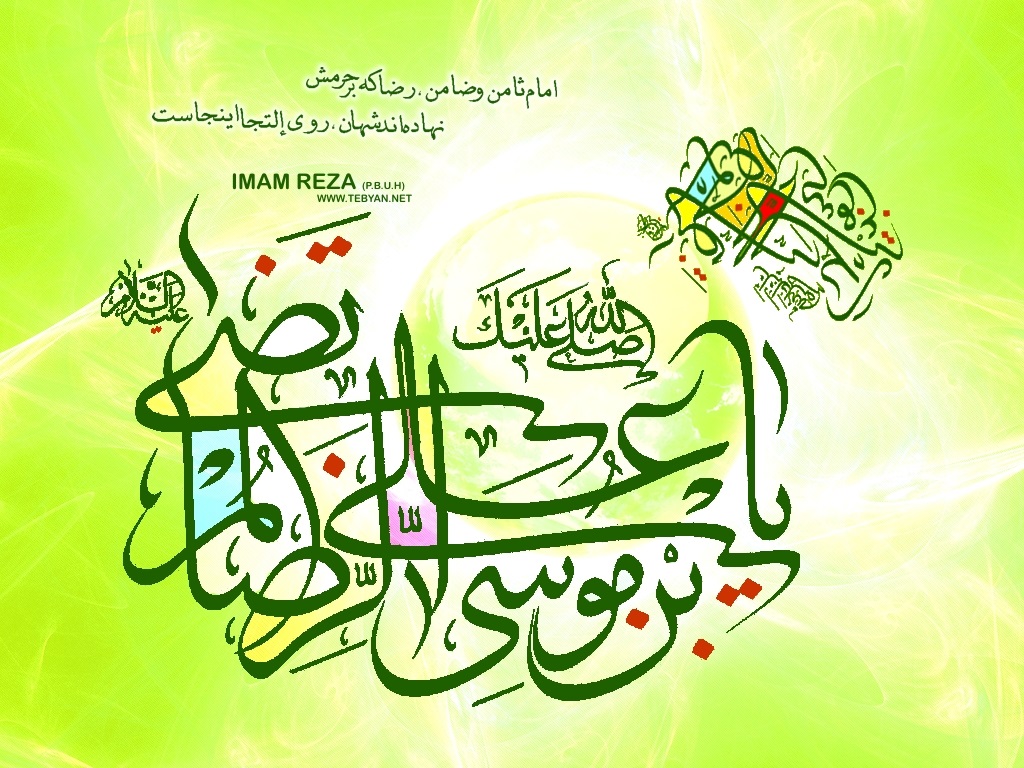 امام ثامن وضامن، رضا که بر حرمش
نهاده‌اند شهان، روی إلتجا اینجاست
IMAM REZA (P.B.U.H)
WWW.TEBYAN.NET
صلی الله علیک
یا علی بن موسی الرضا المرتضی
علیه السلام